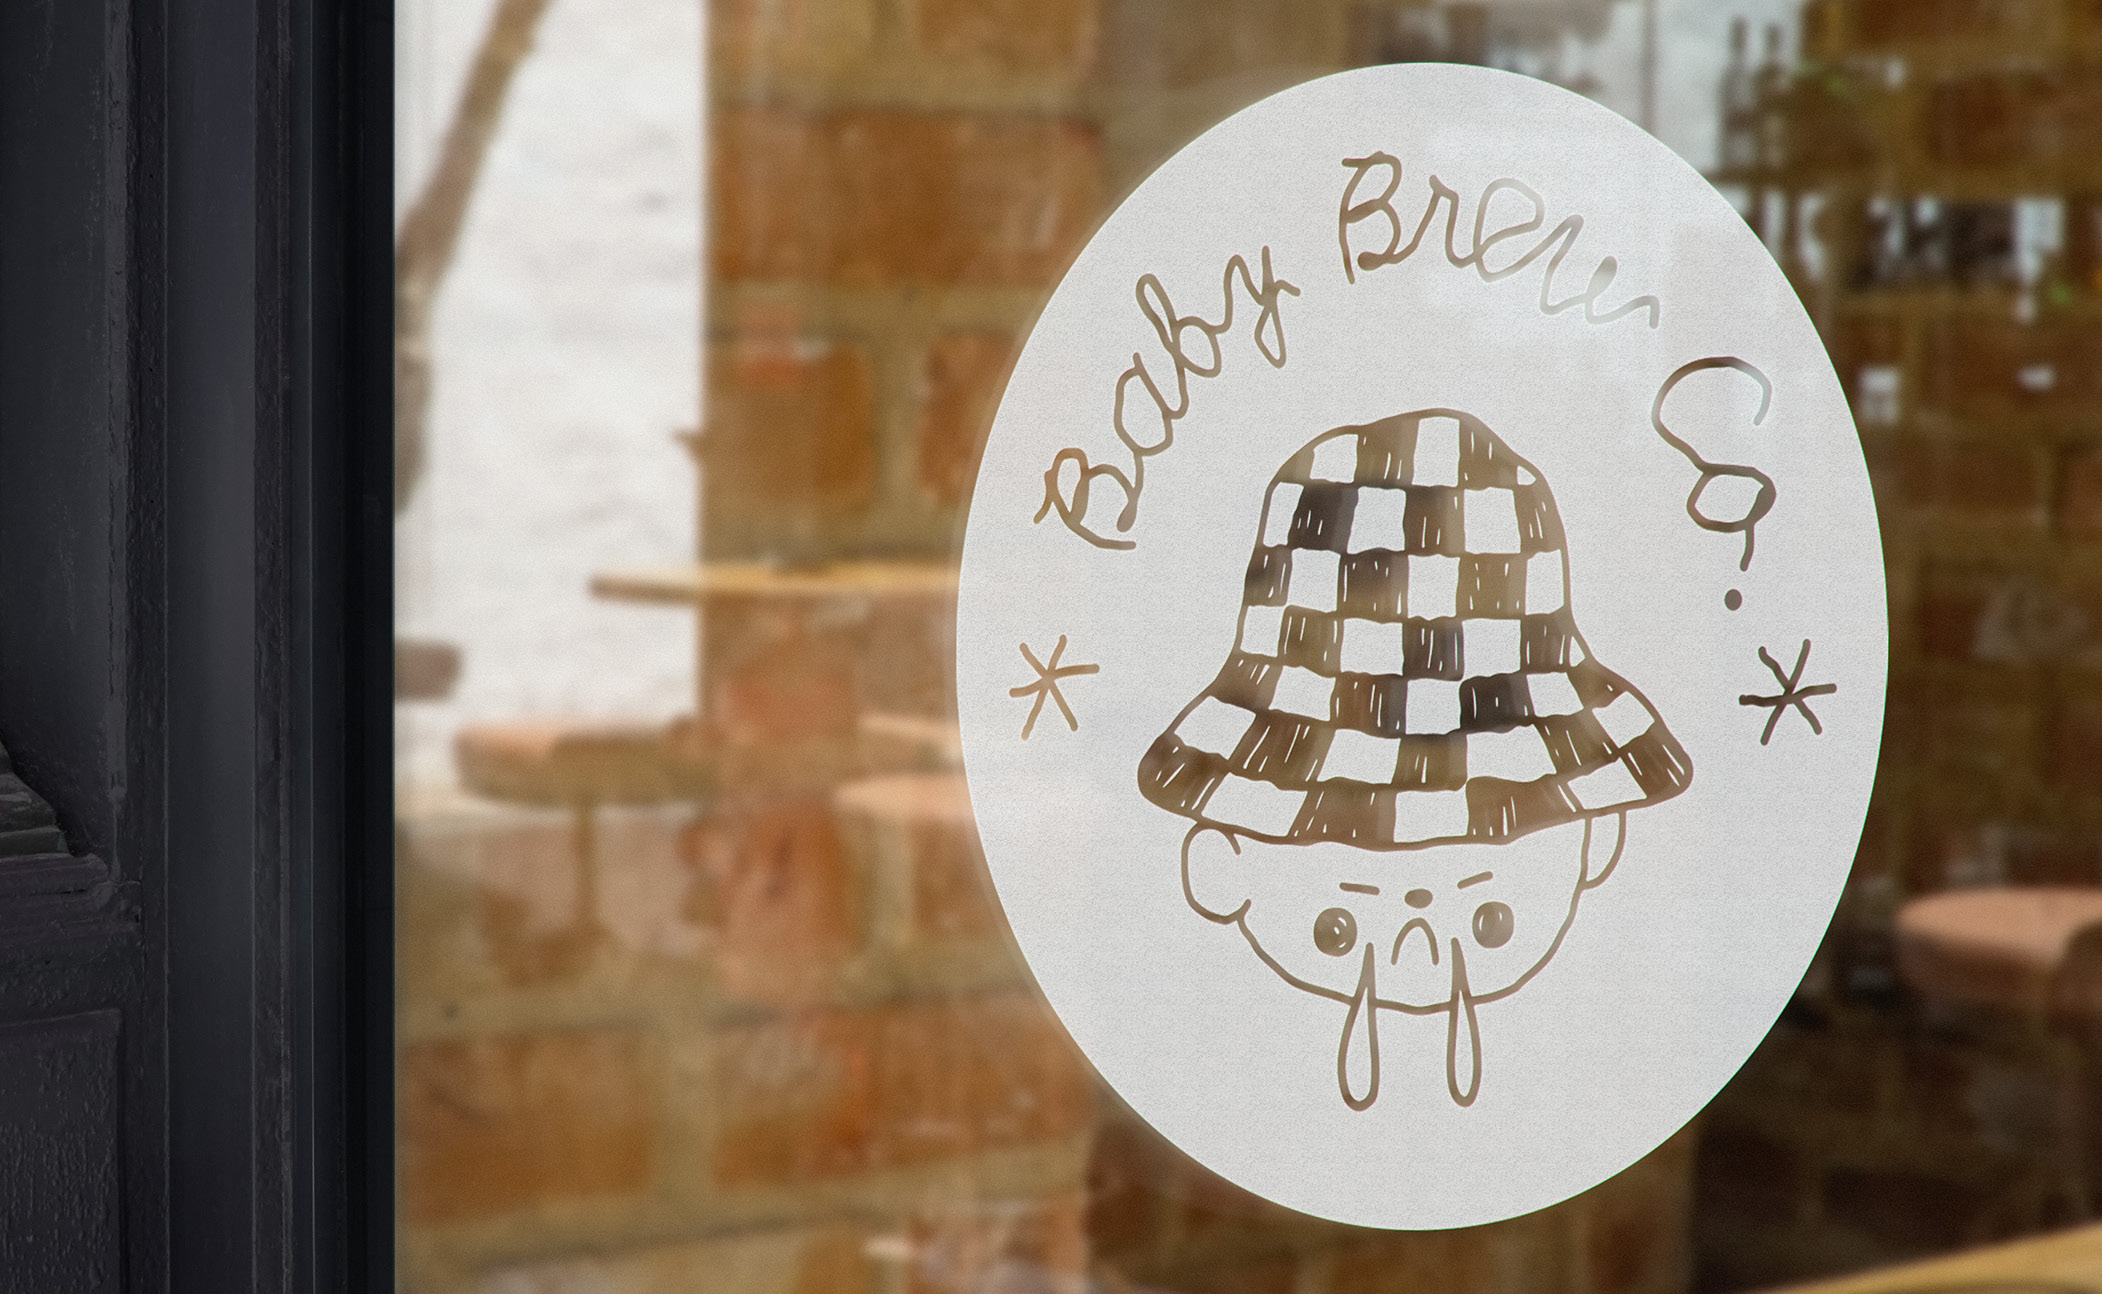 Baby Brew Co.